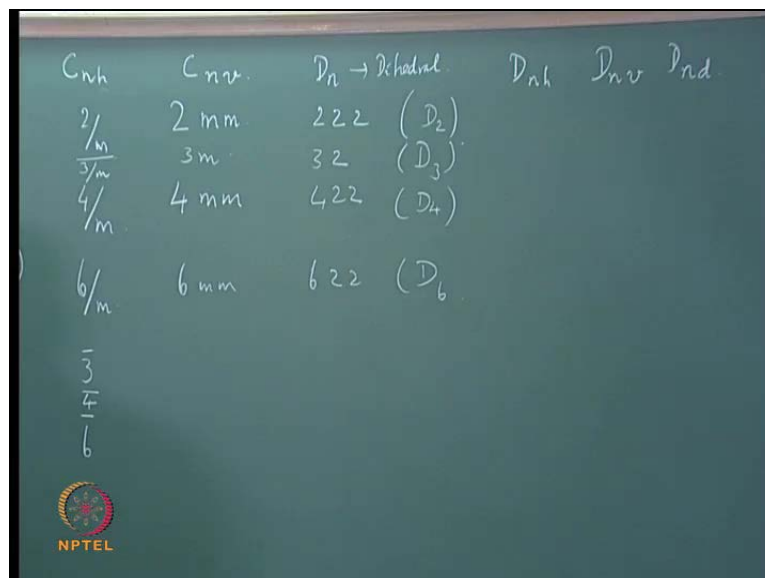 Cnh Cnv. Dn → Dihedral. Dnh Dnv Dnd
2/m 2mm 222 (D2)
3/m 3m 32 (D3)
4/m. 4mm 422 (D4)
) 6/m. 6mm 622 (D6
3̅
4̅
6̅
NPTEL